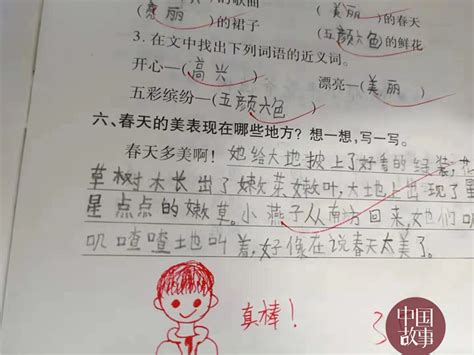 (美丽)的裙子 (美丽)的春天
(五颜六色)的鲜花
3. 在文中找出下列词语的近义词。
开心—(高兴) 漂亮—(美丽)
五彩缤纷—(五颜六色)
六、春天的美表现在哪些地方？想一想，写一写。
春天多美啊！她给大地披上了好看的绿装，花
草树木长出了嫩芽嫩叶，大地上出现了星
星点点的嫩草。小燕子从南方回来，她们叽
叽喳喳土地叫着，好像在说春天太美了。
真棒！
3
中国
故事